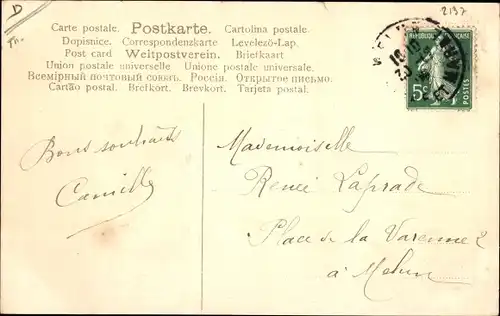 D
2137
Carte postale. Postkarte. Cartolina postale.
Dopisnice. Correspondenzkarte. Levelező-Lap.
Post card Weltpostverein. Briefkaart
Union postale universelle Unione postale universale.
Всемірный почтовый союзъ. Россія. Открытое письмо.
Cartão postal. Brefkort. Brevkort. Tarjeta postal.
RÉPUBLIQUE FRANÇAISE
5c
POSTES
Bons souhaits
Camille
Mademoiselle
Renée Laprade
Place de la Varenne 2
à Melun